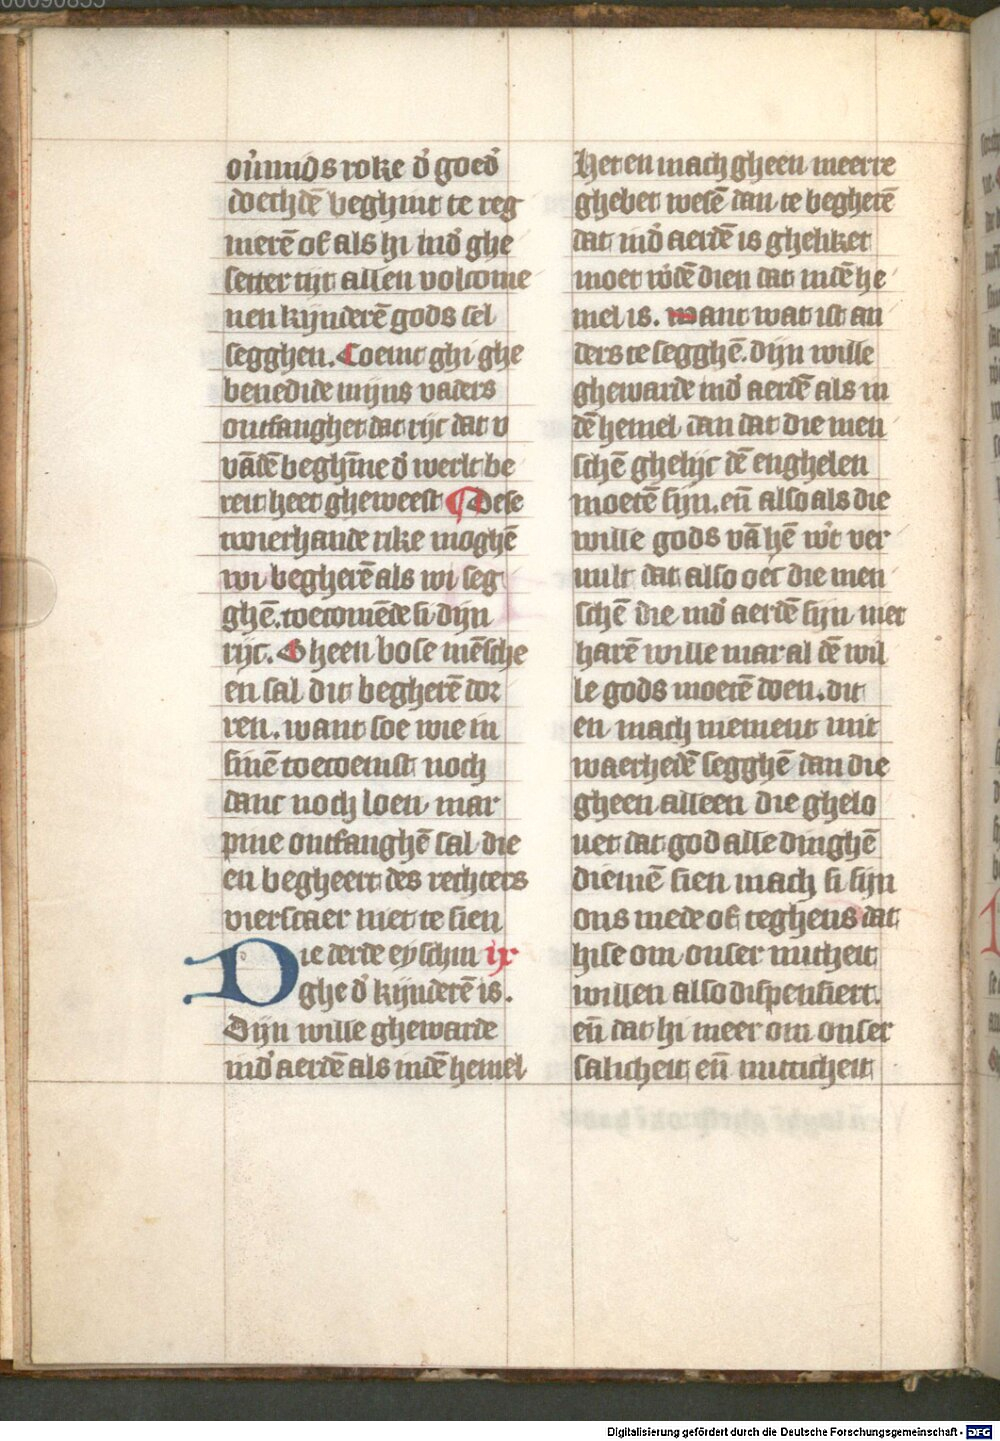 ou̓mids roke d̓ goed̓
doechdē beghint te reg
nierē of als hi ind̓ ghe
setter tijt allen volcome
nen kijnderē gods sel
segghen. Coemt ghi ghe
benedide mijns vaders
ontfanghet dat rijc dat v
vādē beghīne d̓ werlt be
reit heet gheweest ¶ Dese
twierhande rike moghē
wi begherē als wi seg
ghē. toecomēde si dijn
rijc. Gheen bose mēsche
en sal dit begherē dor
ren. want soe wie in
sinē toecoemst noch
danc noch loen mar
pine ontfanghē sal die
en begheert des rechters
vierscaer niet te sien
Die derde eyschin ix
ghe d̓ kijnderē is.
Dijn wille ghewarde
ind̓ aerdē als indē hemel
Het en mach gheen meerre
ghebet wesē dan te begherē
dat ind̓ aerdē is ghelijket
moet w̓dē dien dat indē he
mel is. want wat ist an
ders te segghē. dijn wille
ghewarde ind̓ aerdē als in
dē hemel dan dat die men
schē ghelijc dē enghelen
moetē sijn. eñ also als die
wille gods vā hē w̓t ver
uult dat also oec die men
schē die ind̓ aerdē sijn niet
harē wille mar al dē wil
le gods moetē doen. dit
en mach niement mit
waerhedē segghē dan die
gheen alleen die ghelo
uet dat god alle dinghē
diemē sien mach si sijn
ons mede of teghens dat
hise om onser nutheit
willen also dispensiert.
eñ dat hi meer om onser
salicheit eñ nutticheit
Digitalisierung gefördert durch die Deutsche Forschungsgemeinschaft - DFG